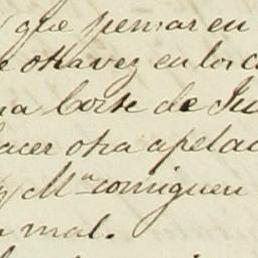 que pensar en
otra vez en los
corte de
hacer otra apelac
Mª consiguen
mal.